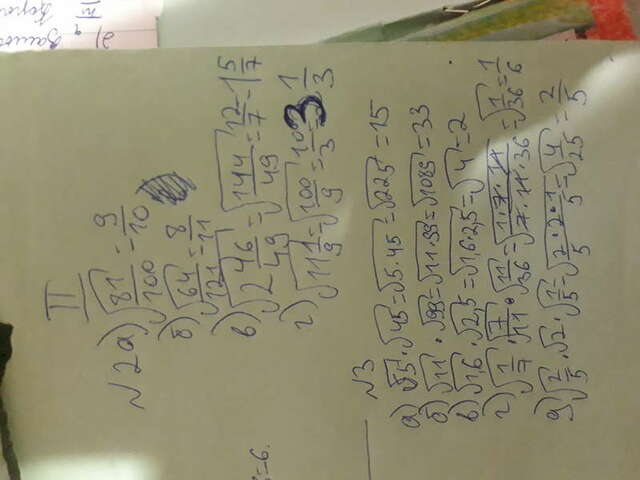 II
№2 а) √(81/100) = 9/10
б) √(64/121) = 8/11
в) √(2 46/49) = √(144/49) = 12/7 = 1 5/7
г) √(11 1/9) = √(100/9) = 10/3 = 3 1/3
№3
а) √5 · √45 = √(5·45) = √225 = 15
б) √11 · √99 = √(11·99) = √1089 = 33
в) √1,6 · √2,5 = √(1,6·2,5) = √4 = 2
г) √(1/7) · √(7/11) · √(11/36) = √((1·7·11)/(7·11·36)) = √(1/36) = 1/6
д) √(2/5) · √2 · √(1/5) = √((2·2·1)/(5·5)) = √(4/25) = 2/5
=6.
д)
III